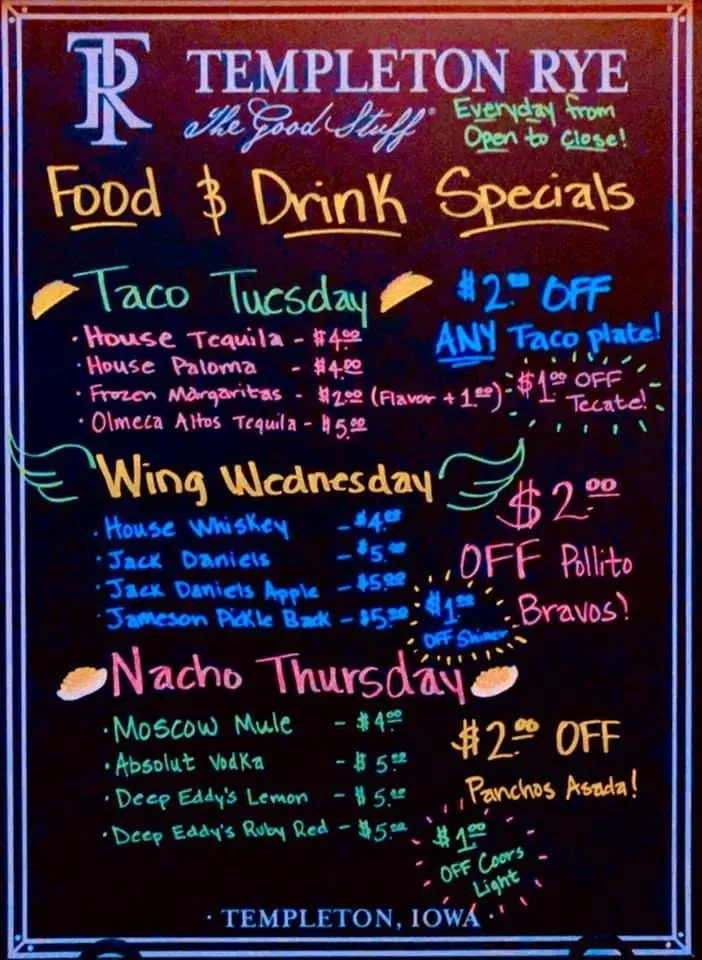 TR TEMPLETON RYE
The Good Stuff®
Everyday from
Open to Close!
Food & Drink Specials
Taco Tuesday
• House Tequila - $4.00
• House Paloma - $4.00
• Frozen Margaritas - $2.00 (Flavor + 1.00)
• Olmeca Altos Tequila - $5.00
$2.00 OFF
ANY Taco plate!
$1.00 OFF
Tecate!
Wing Wednesday
• House Whiskey - $4.00
• Jack Daniels - $5.00
• Jack Daniels Apple - $5.00
• Jameson Pickle Back - $5.00
$1.00
OFF Shiner
$2.00
OFF Pollito
Bravos!
Nacho Thursday
• Moscow Mule - $4.00
• Absolut Vodka - $5.00
• Deep Eddy's Lemon - $5.00
• Deep Eddy's Ruby Red - $5.00
$2.00 OFF
Panchos Asada!
$1.00
OFF Coors
Light
· TEMPLETON, IOWA ·